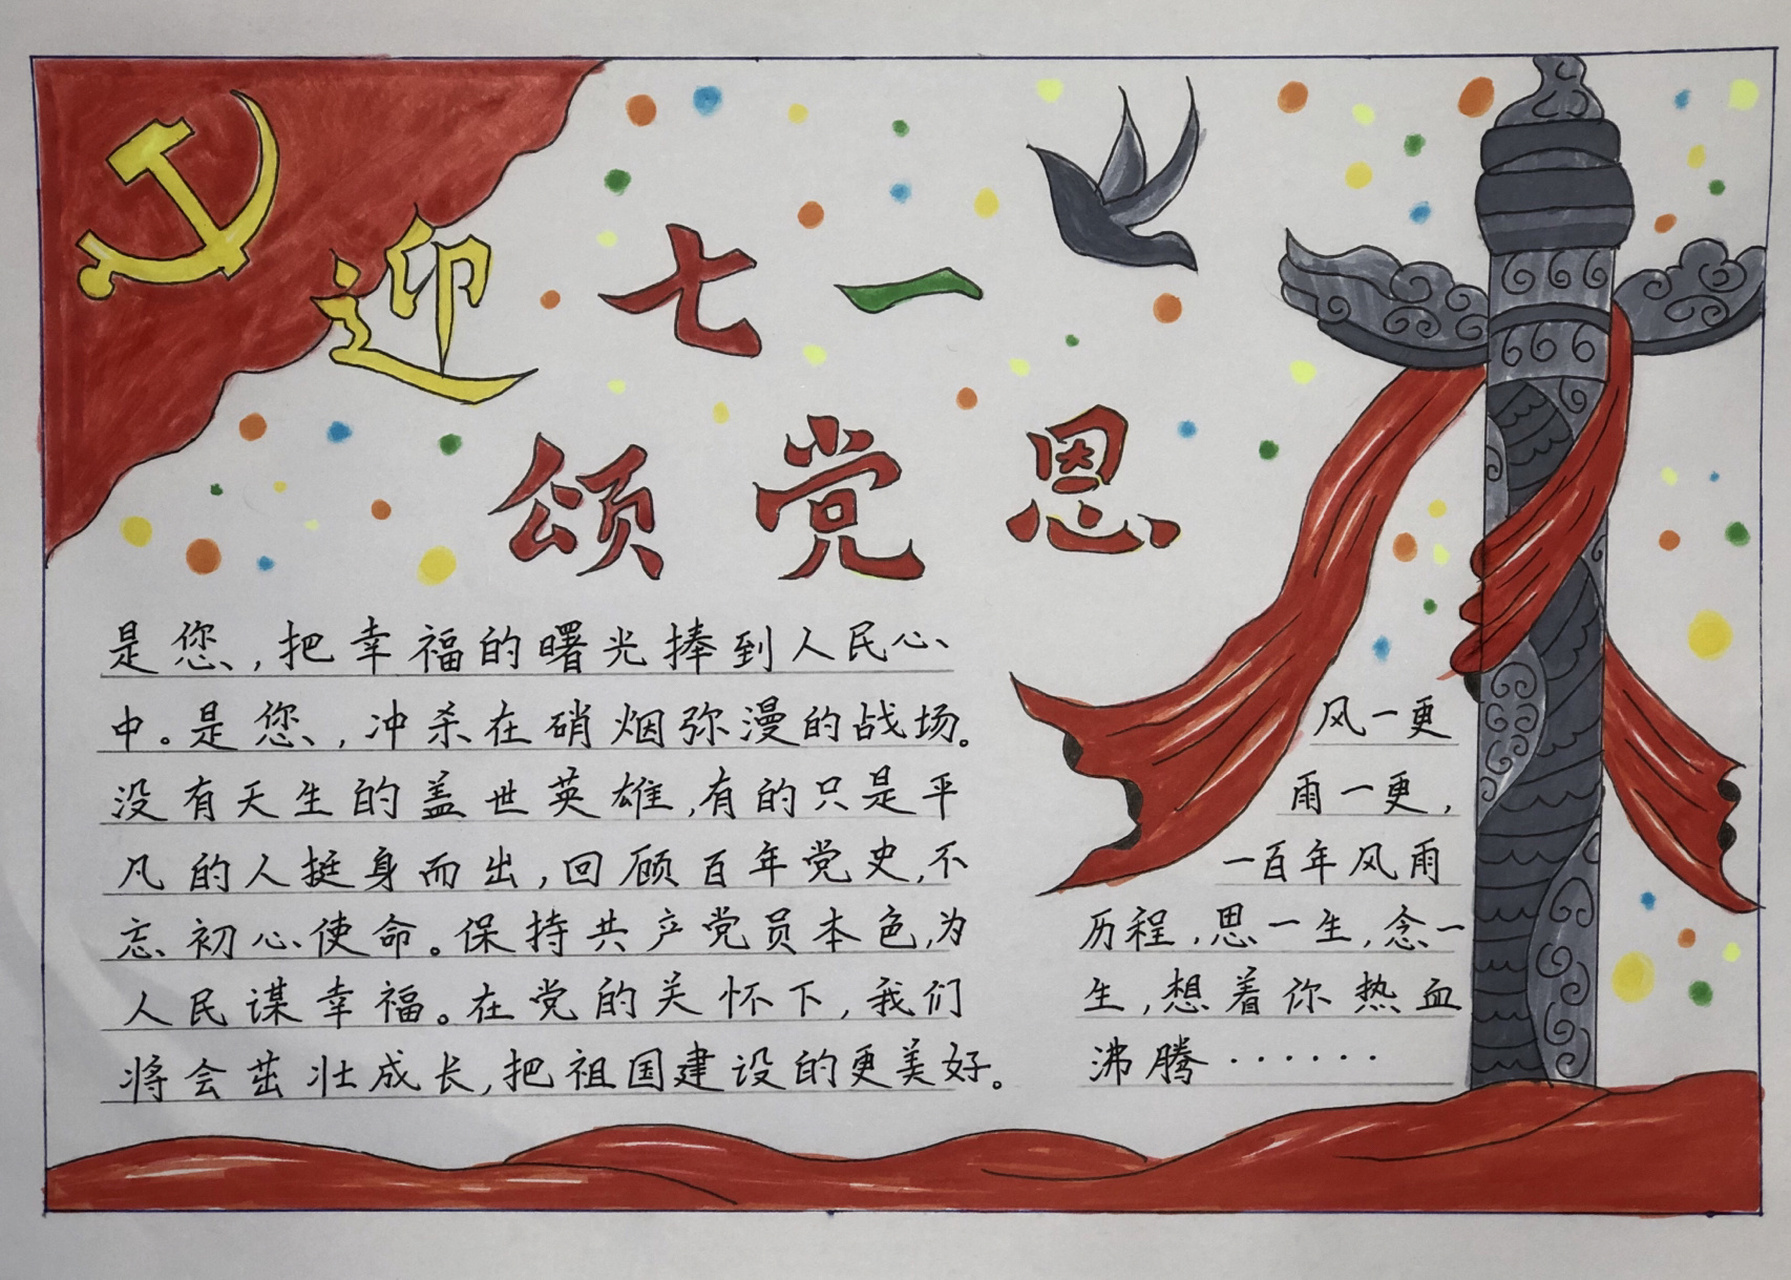 迎七一
颂党恩
是您,把幸福的曙光捧到人民心
中。是您,冲杀在硝烟弥漫的战场。
没有天生的盖世英雄,有的只是平
凡的人挺身而出,回顾百年党史,不
忘初心使命。保持共产党员本色,为
人民谋幸福。在党的关怀下,我们
将会茁壮成长,把祖国建设的更美好。
风一更
雨一更,
一百年风雨
历程,思一生,念一
生,想着你热血
沸腾······